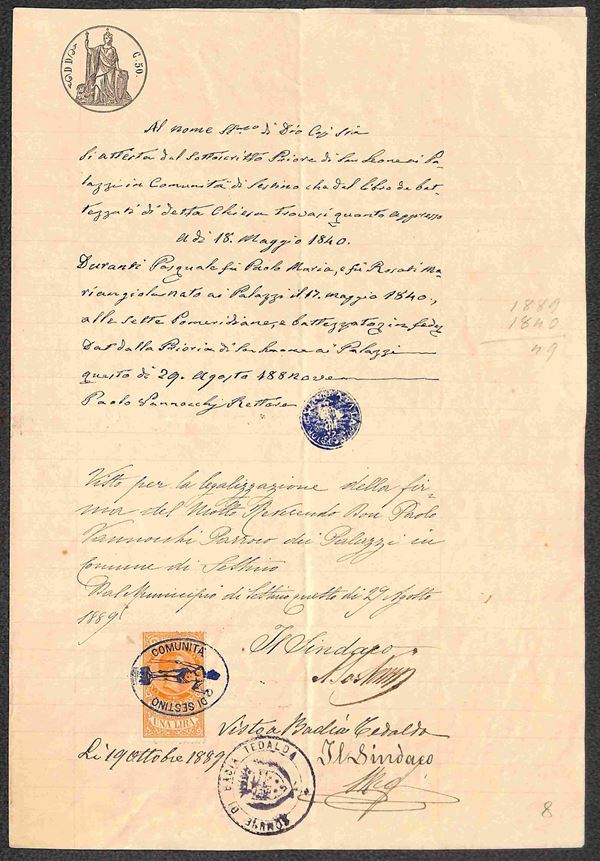 C. 50.
Al nome SS.mo di Dio Così sia
Si attesta dal sottoscritto Priore di San Leone ai Pa-
lazzi in Comunità di Sestino che dal libro de bat-
tezzati di detta Chiesa trovasi quanto appresso
A dì 18. Maggio 1840.
Duranti Pasquale fù Paolo Maria, e fù Rosati Ma-
riangiola nato ai Palazzi il 17. maggio 1840.,
alle sette Pomeridiane, e battezzato in fede
Dat dalla Prioria di San Leone ai Palazzi
questo dì 29. Agosto 188nove
Paolo Vannocchj Rettore
1889
1840
49
Visto per la legalizzazione della fir-
ma del Molto Reverendo Don Paolo
Vannocchi Parroco dei Palazzi in
Comune di Sestino
Dal Municipio di Sestino dì 29 Agosto
1889
Il Sindaco
COMUNITÀ
DI SESTINO
UNA LIRA
Visto a Badia Tedalda
Lì 19 Ottobre 1889
Il Sindaco
COMUNE DI BADIA TEDALDA
8